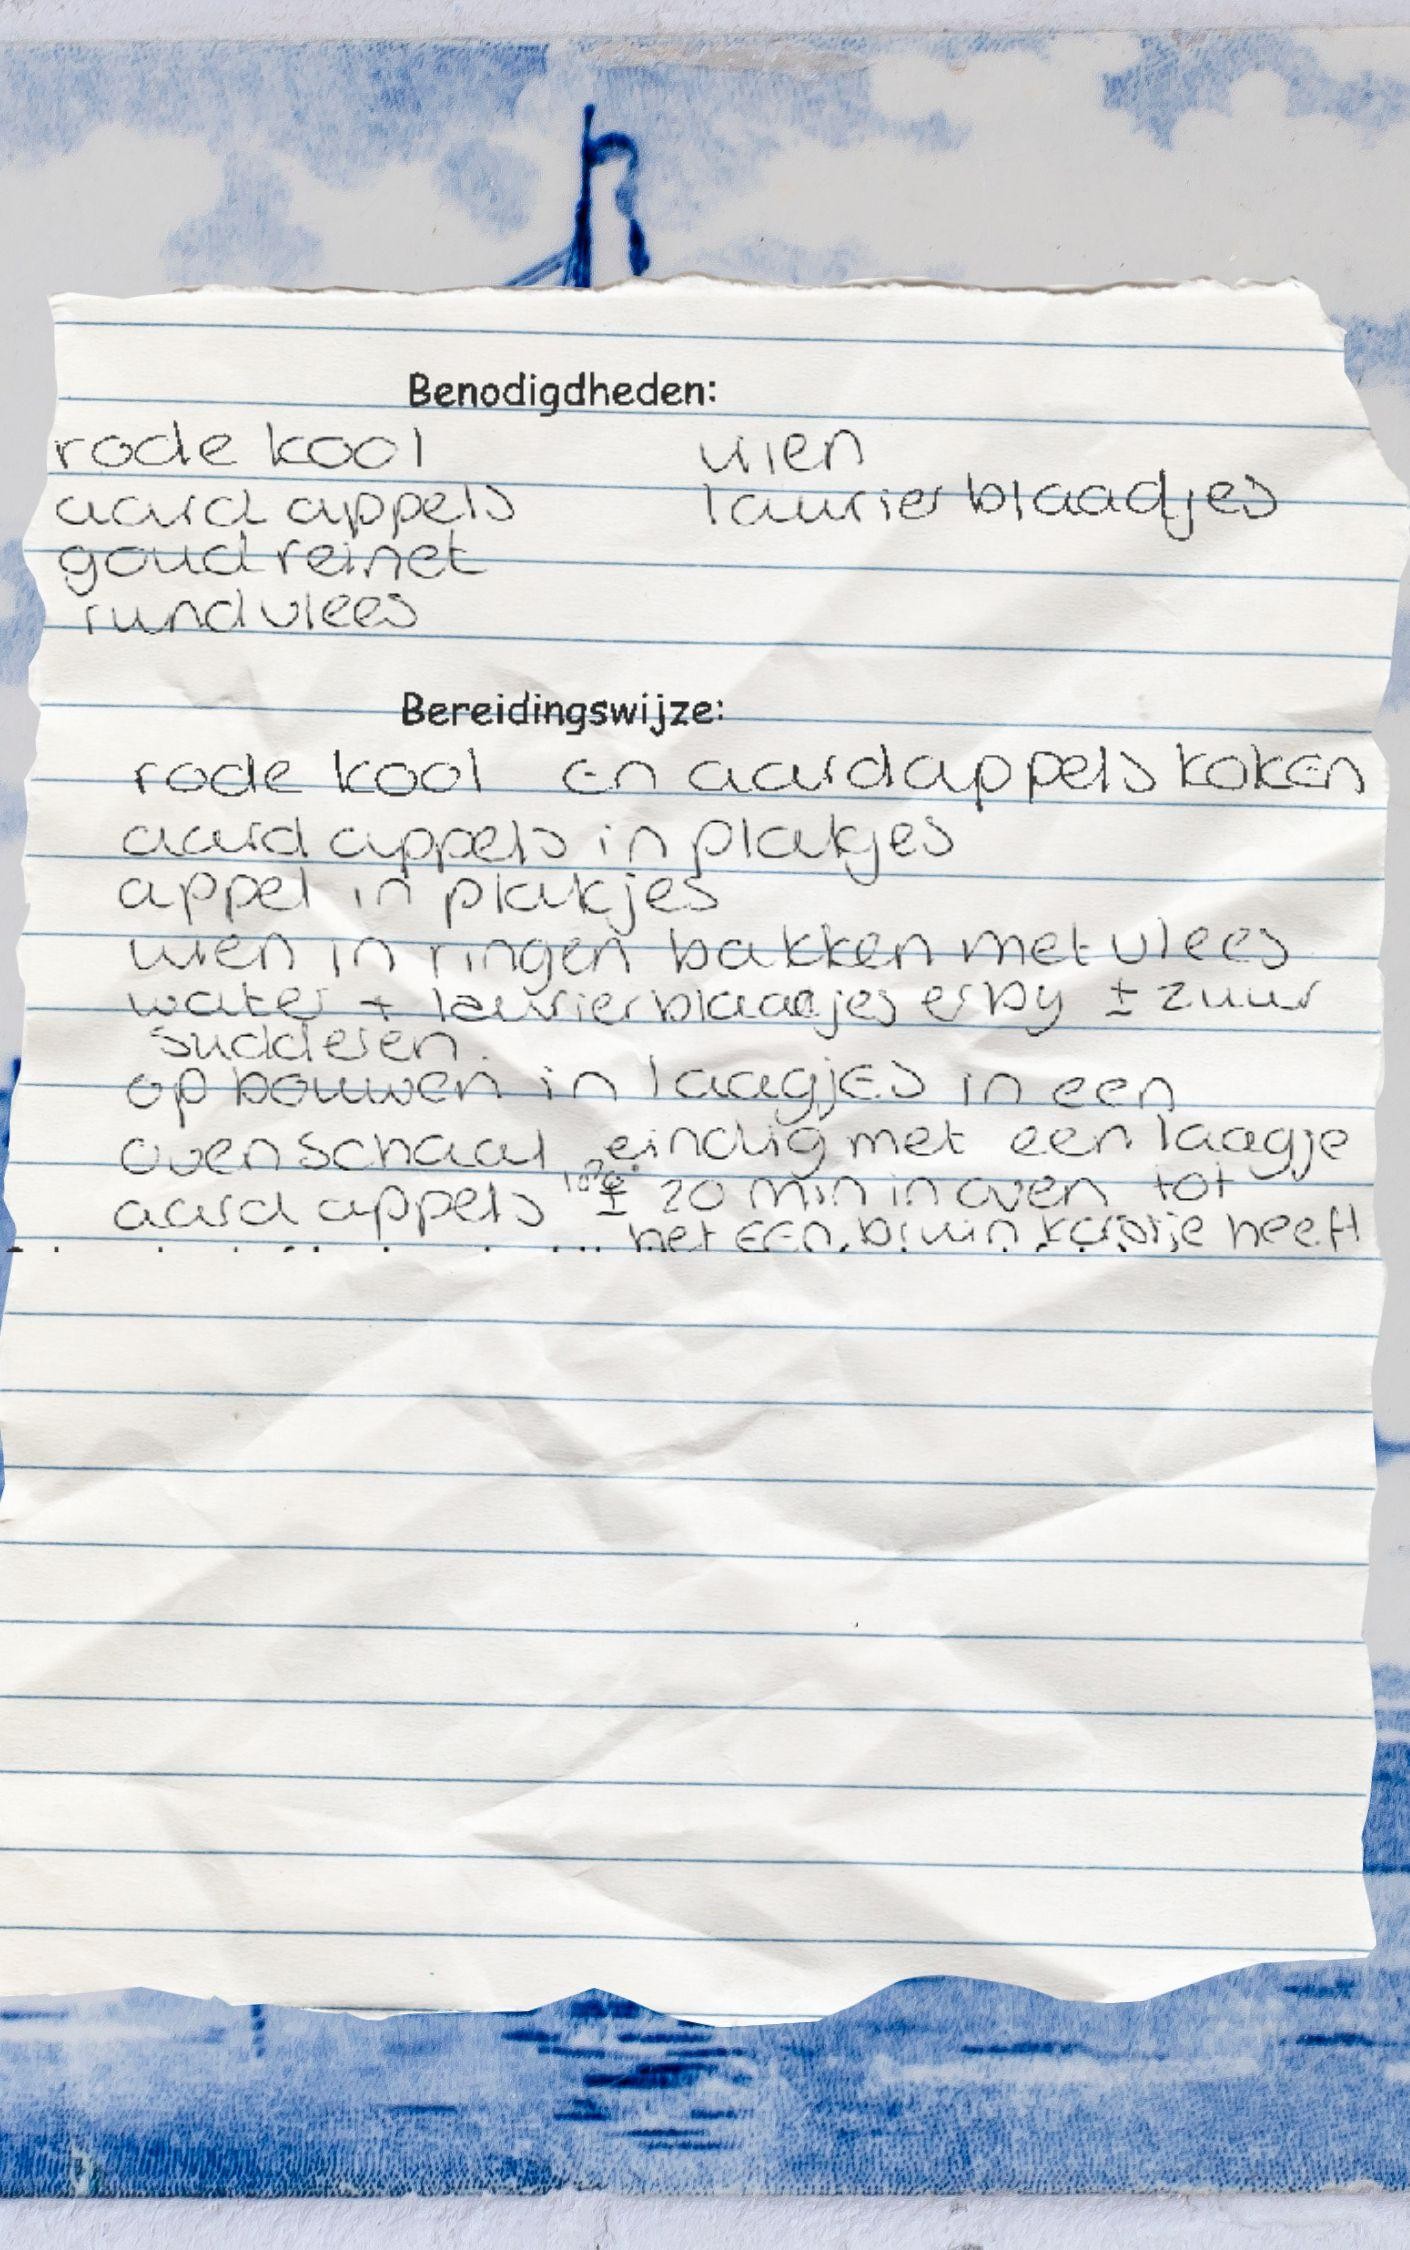 Benodigdheden:
rode kool
aard appels
goud reinet
rund vlees
uien
laurier blaadjes
Bereidingswijze:
rode kool en aardappels koken
aard appels in plakjes
appel in plakjes
uien in ringen bakken met vlees
water + laurierblaadjes erby ± 2 uur
sudderen.
op bouwen in laagjes in een
ovenschaal eindig met een laagje
aard appels ± 20 min in oven tot
het een bruin korstje heeft